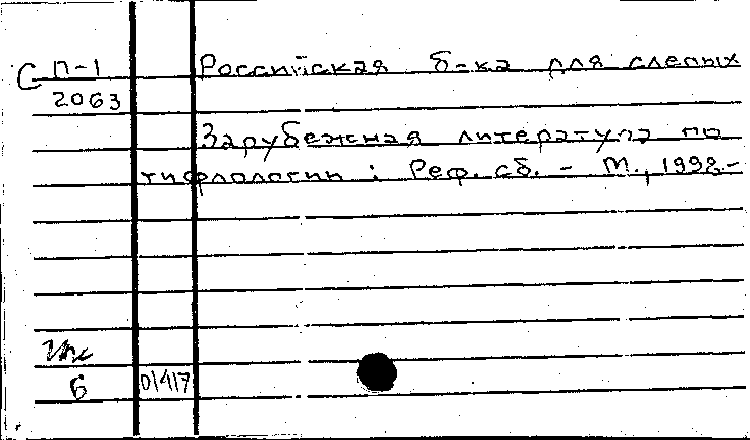 С П-1 Российская б-ка для слепых
2063
Зарубежная литература по
тифлологии : Реф. сб. - М., 1998.-
Б 01417